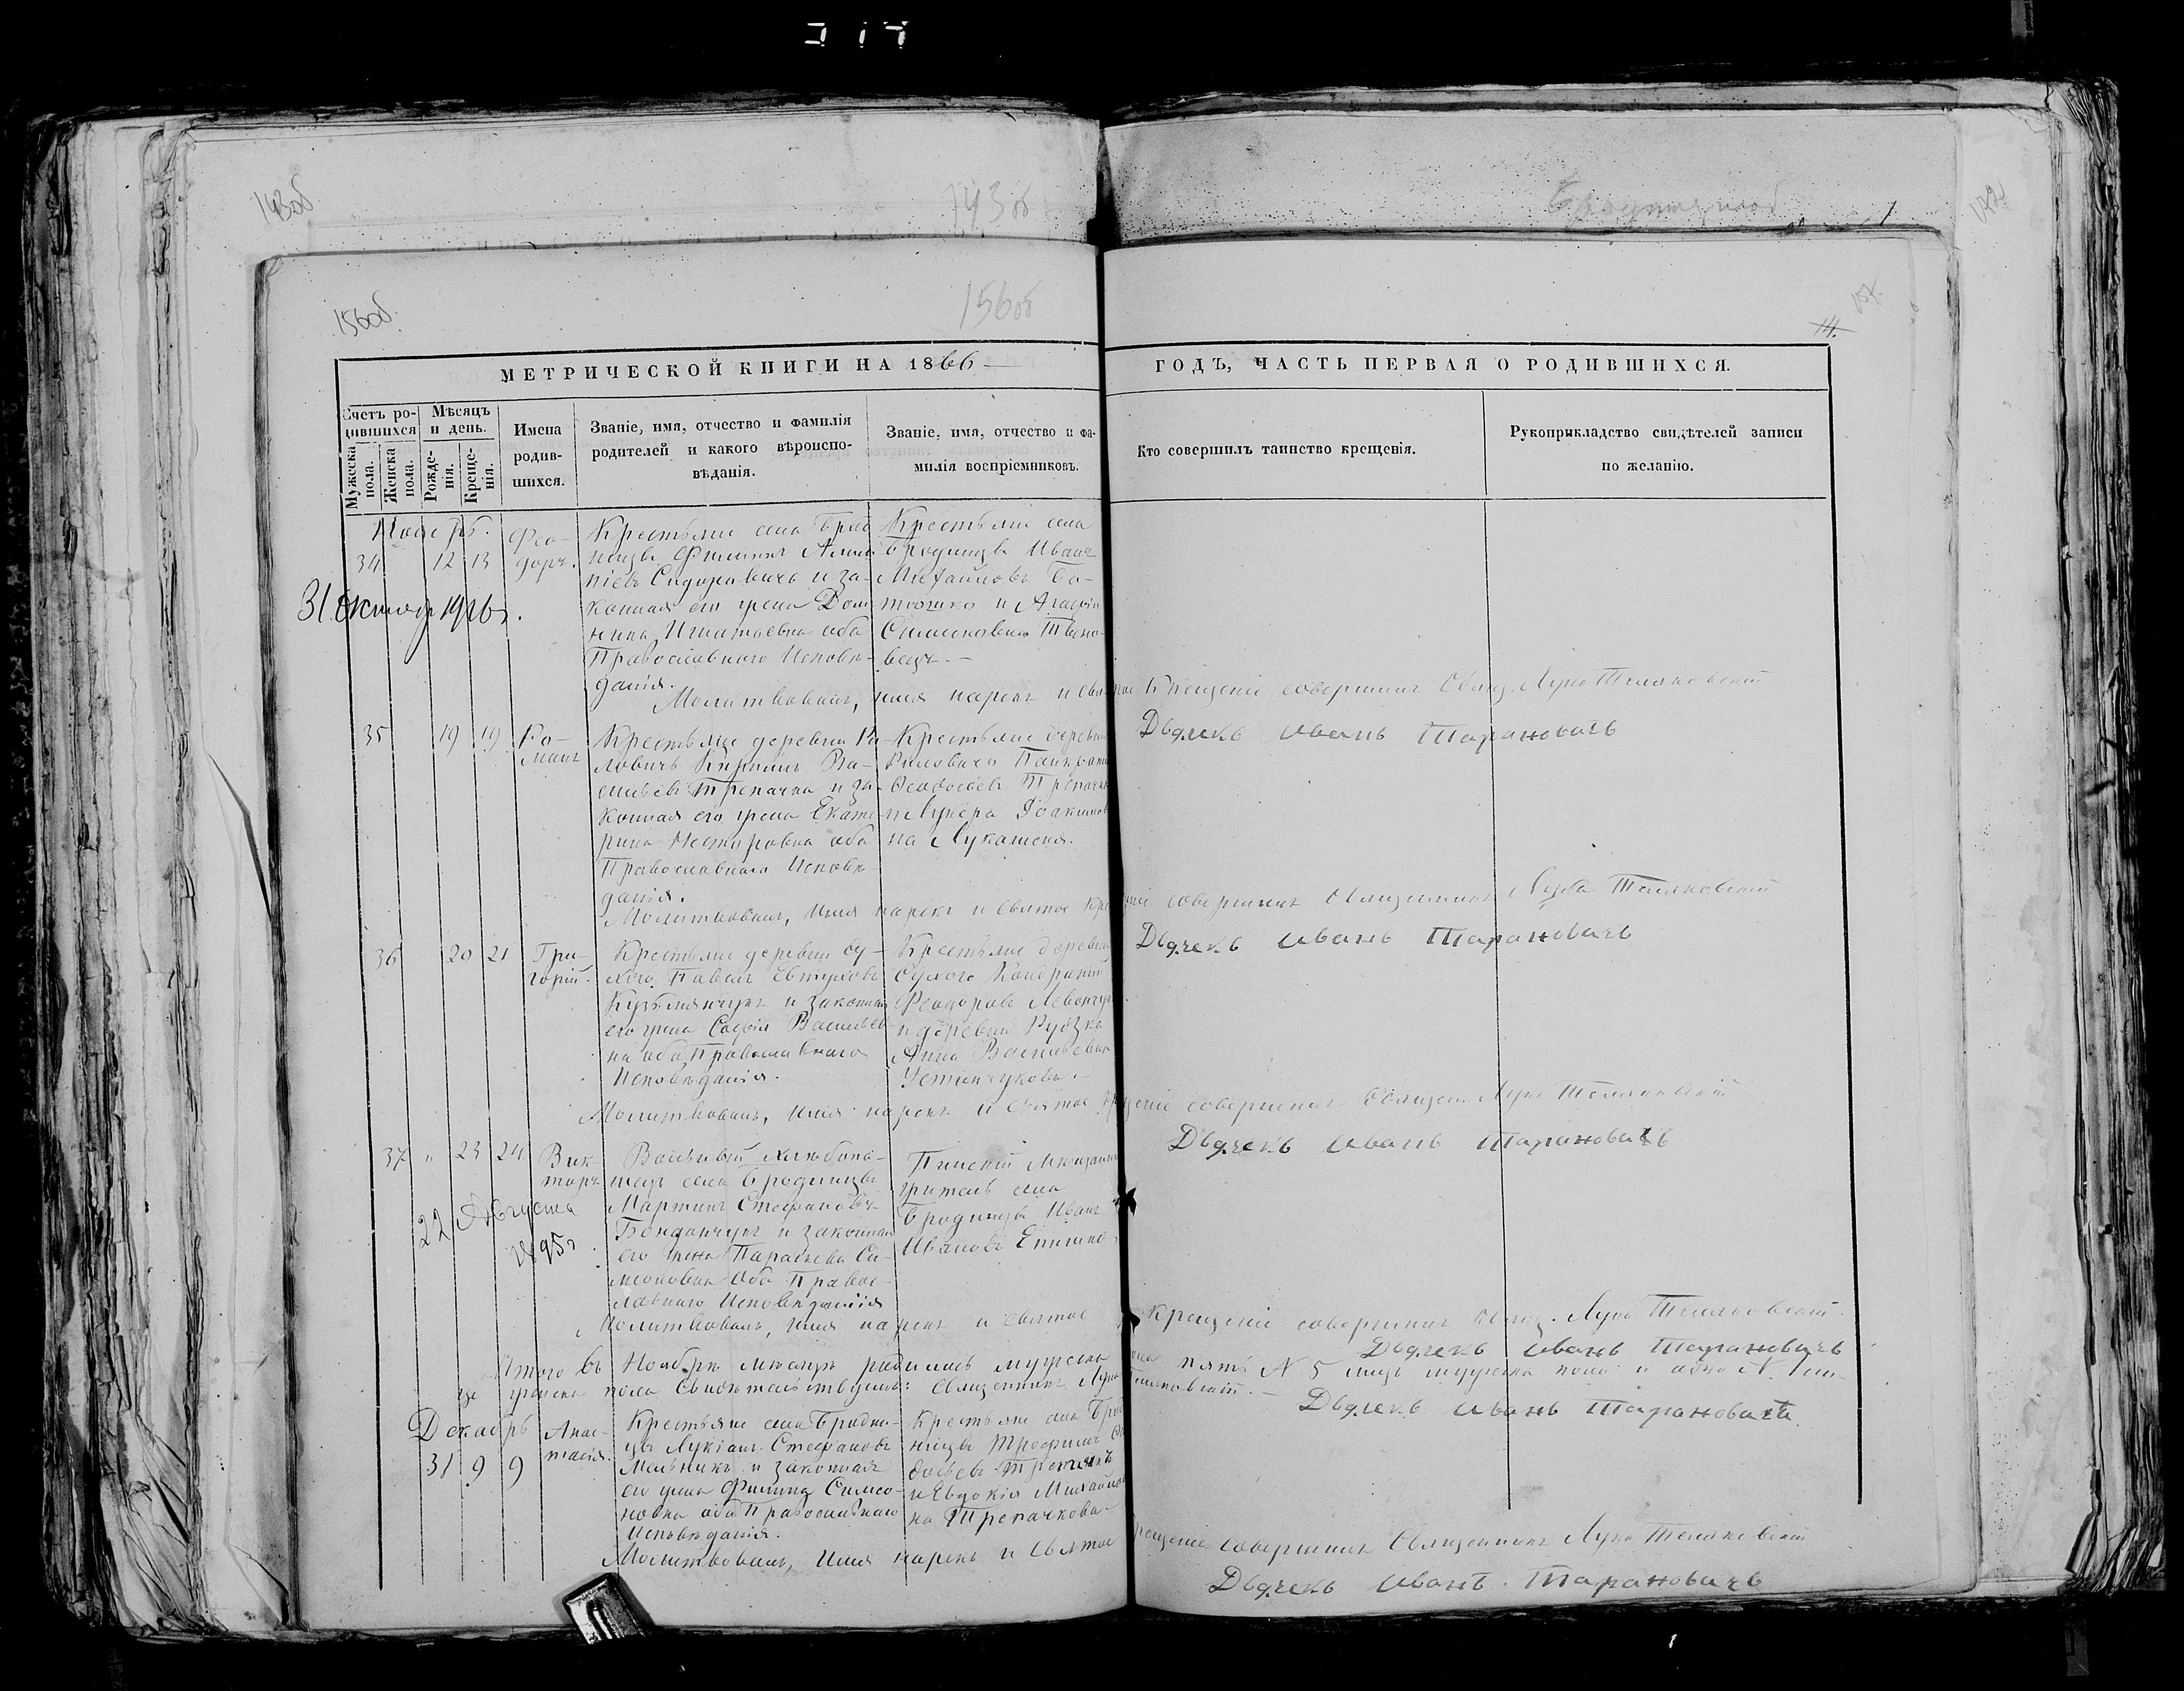 143об
143об
142
1
156об.
156об
157.
14.
МЕТРИЧЕСКОЙ КНИГИ НА 1866
ГОДЪ, ЧАСТЬ ПЕРВАЯ О РОДИВШИХСЯ.
Счетъ родившихся
Мужеска пола.
Женска пола.
Мѣсяцъ и день.
Рожденія.
Крещенія.
Имена родившихся.
Званіе, имя, отчество и фамилія
родителей и какого вѣроиспо-
вѣданія.
Званіе, имя, отчество и фа-
милія воспріемниковъ.
Кто совершилъ таинство крещенія.
Рукоприкладство свидѣтелей записи
по желанію.
Ноябрь.
34 12 13
Фео-
доръ.
31 октября 1916 г.
Крестьяне села Брод-
ницы Филиппъ
Сидоровичъ и за-
конная его жена Дом-
ника Игнатьевна оба
Православнаго Исповѣ-
данія.
Крестьяне села
Бродницы Иванъ
Михайловъ
и Агафія
Симеоновна
Молитвовалъ, имя нарекъ и святое Крещеніе совершилъ Свящ. Лука Теляковскій
Дьячекъ Иванъ Тарановичъ
35 19 19
Ро-
манъ
Крестьяне деревни
Кириллъ Ва-
сильевъ Трепачка и за-
конная его жена Екате-
рина Несторовна оба
Православнаго Исповѣ-
данія.
Крестьяне деревни
Феодосіевъ Трепачка
и Лукера Іоакимов-
на Лукашеня.
Молитвовалъ, имя нарекъ и святое крещеніе совершилъ Священникъ Лука Теляковскій
Дьячекъ Иванъ Тарановичъ
36 20 21
Гри-
горій.
Крестьяне деревни Су-
хого Павелъ
Кузьминчукъ и законная
его жена Софія Васильев-
на оба Православнаго
Исповѣданія.
Крестьяне деревни
Сухого Кондратій
Феодоровъ Левончукъ
и деревни Рудка
Анна Васильевна
Устимчукова.
Молитвовалъ, имя нарекъ и святое крещеніе совершилъ Священ. Лука Теляковскій
Дьячекъ Иванъ Тарановичъ
37 " 23 24
Вик-
торъ
22 Августа
1895 г.
села Бродницы
Мартинъ Стефановъ
Бондарчукъ и законная
его жена Параскева Си-
меоновна оба Право-
славнаго Исповѣданія
Пинскій Мѣщанинъ
житель села
Бродницы Иванъ
Ивановъ
Молитвовалъ, имя нарекъ и святое Крещеніе совершилъ Свящ. Лука Теляковскій.
Дьячекъ Иванъ Тарановичъ
Итого въ Ноябрѣ мѣсяцѣ родилось мужеска пола пять N 5
женска пола Свидѣтельствуемъ: Священникъ Лука Теляковскій.
Дьячекъ Иванъ Тарановичъ
Декабрь
31 9 9
Анас-
тасія.
Крестьяне села Бродни-
цы Лукіанъ Стефановъ
Мельникъ и законная
его жена Филипа Симео-
новна оба Православнаго
Исповѣданія.
Крестьяне села Брод-
ницы Трофимъ
и Евдокія Михайлов-
на Трепачкова.
Молитвовалъ, имя нарекъ и святое крещеніе совершилъ Священникъ Лука Теляковскій
Дьячекъ Иванъ Тарановичъ